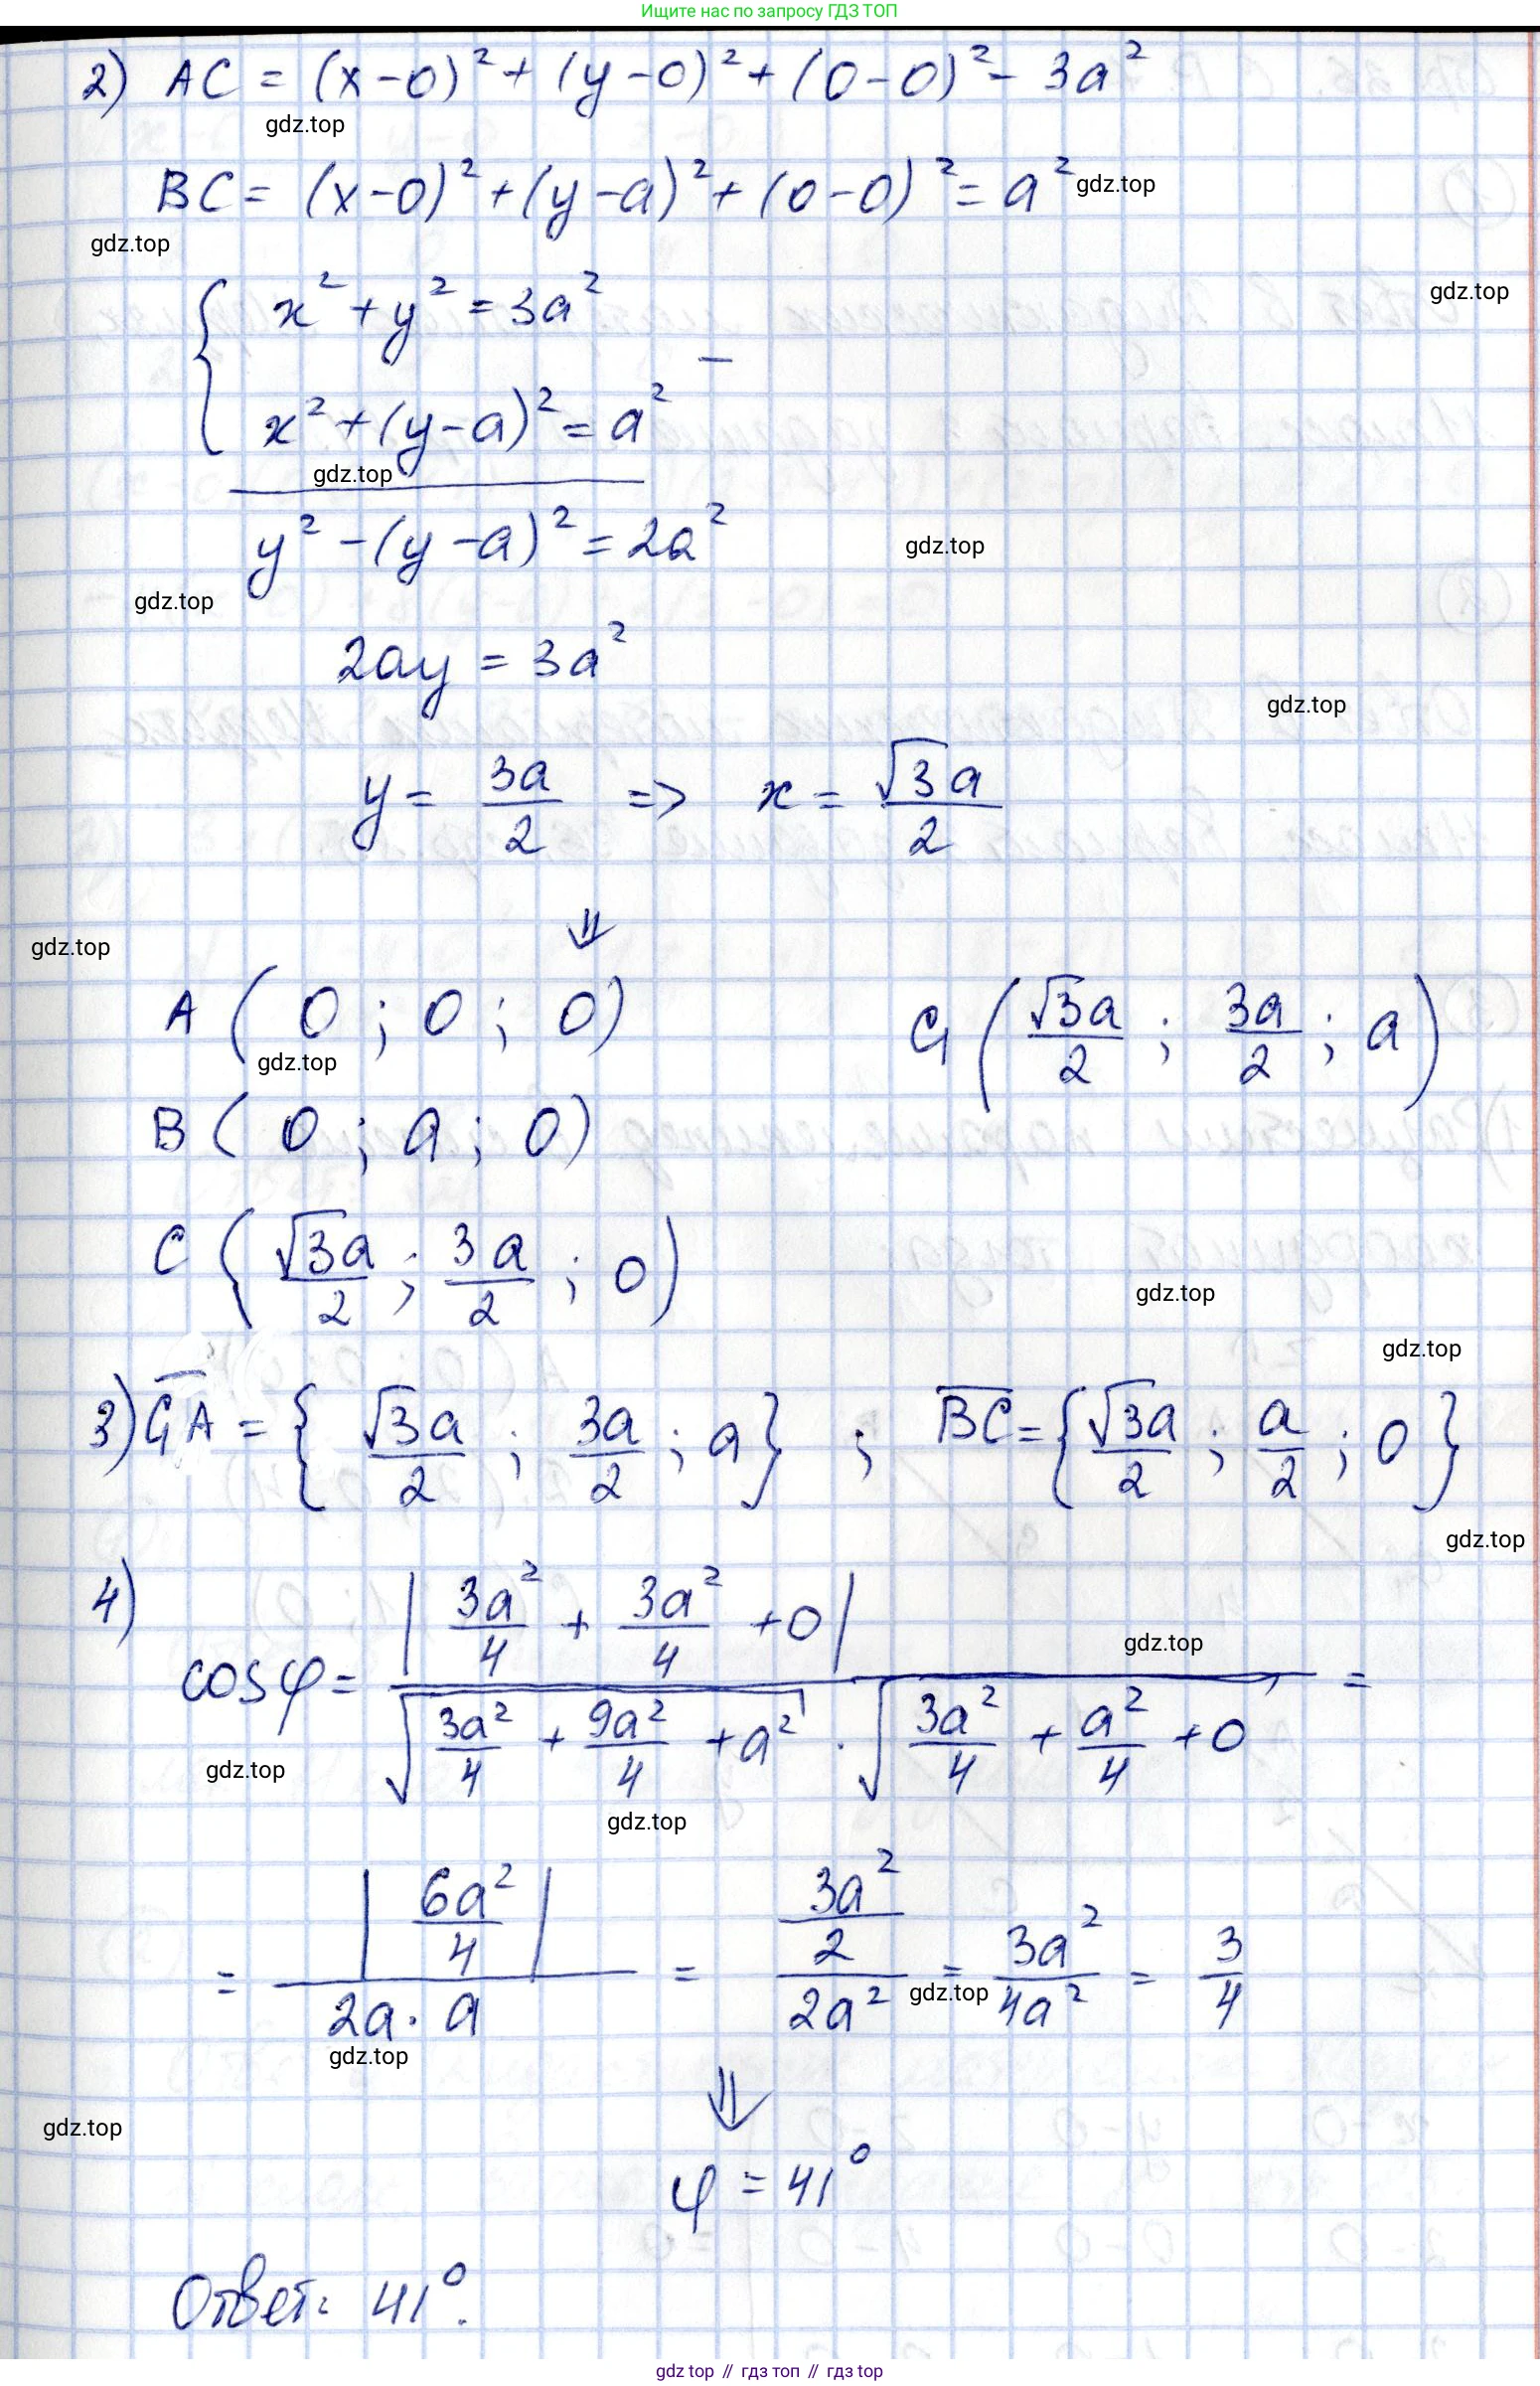 Ищите нас по запросу ГДЗ ТОП
2) AC = (x-0)² + (y-0)² + (0-0)² - 3a²
gdz.top
BC = (x-0)² + (y-a)² + (0-0)² = a² gdz.top
gdz.top
x² + y² = 3a²
gdz.top
-
x² + (y-a)² = a²
gdz.top
y² - (y-a)² = 2a²
gdz.top
gdz.top
2ay = 3a²
gdz.top
y = 3a/2 => x = √3a/2
⇓
gdz.top
A (0; 0; 0) C₁ (√3a/2; 3a/2; a)
gdz.top
B (0; a; 0)
C (√3a/2; 3a/2; 0)
gdz.top
gdz.top
3) C₁A = {√3a/2; 3a/2; a}; BC = {√3a/2; a/2; 0}
gdz.top
4) cosφ = |3a²/4 + 3a²/4 + 0| / √(3a²/4 + 9a²/4 + a²) · √(3a²/4 + a²/4 + 0) =
gdz.top
gdz.top
gdz.top
= |6a²/4| / 2a·a = 3a²/2 / 2a² = 3a²/4a² = 3/4
gdz.top
gdz.top
⇓
gdz.top
φ = 41°
Ответ: 41°.
gdz top // гдз топ // gdz.top